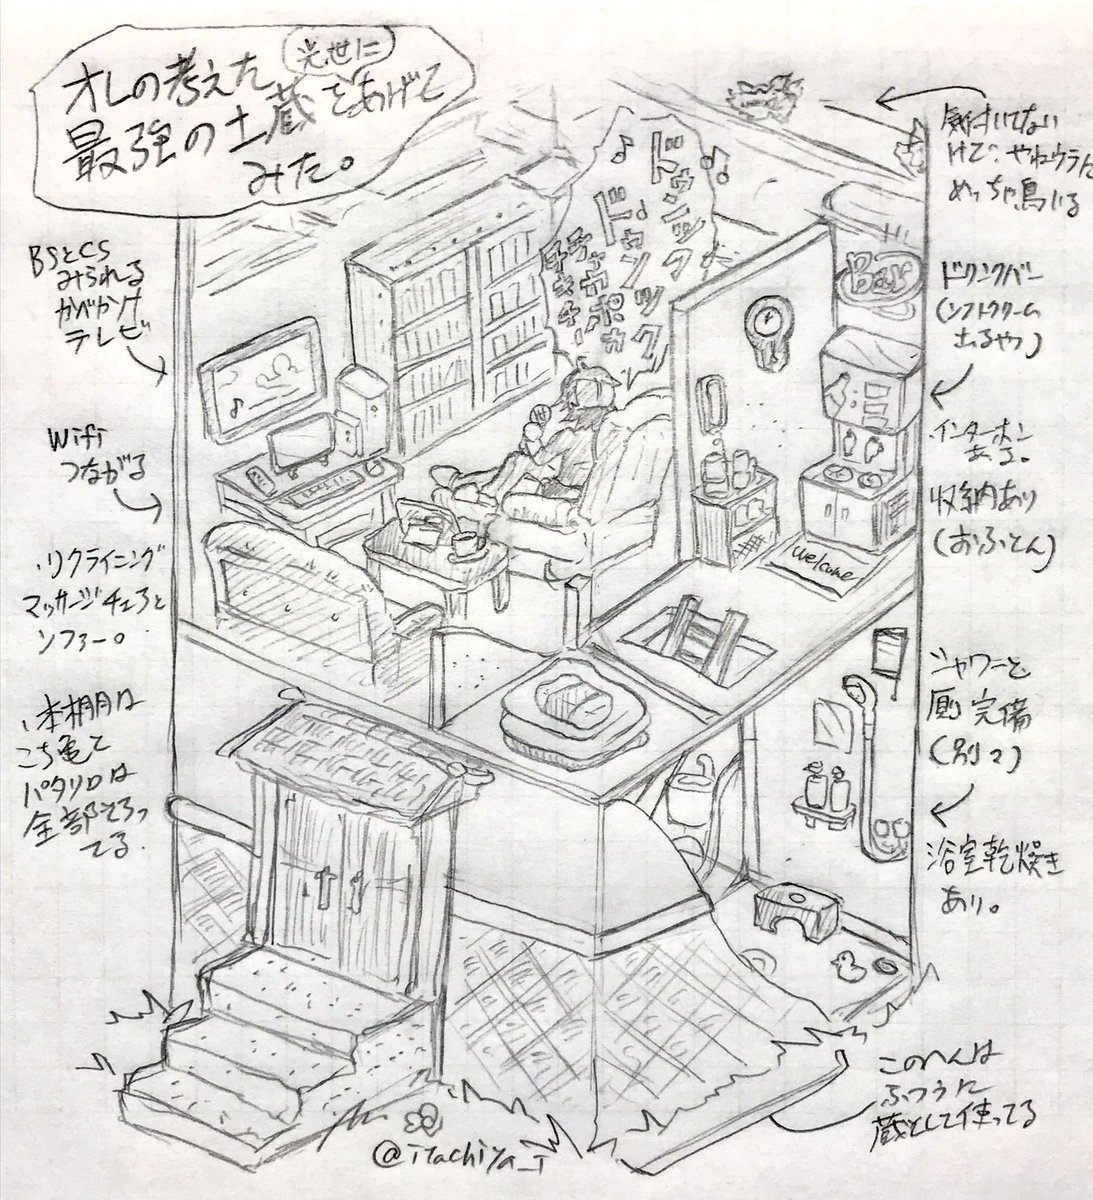 オレの考えた
光世に
最強の土蔵をあげて
みた。
BSとCS
みられる
かべかけ
テレビ
Wifi
つながる
リクライニング
マッサージチェアと
ソファー。
本棚は
こち亀と
パタリロは
全部そろっ
てる。
ドゥンツク
ドゥンツク
チャカポカ
チキチキ
気付いてない
けど、やねウラに
めっちゃ鳥いる
Bar
ドリンクバー
(ソフトクリーム
出るやつ)
インターホン
ある。
収納あり
(おふとん)
welcome
シャワーと
厠完備
(別々)
浴室乾燥き
あり。
このへんは
ふつうに
蔵として使ってる
@itachiya_T